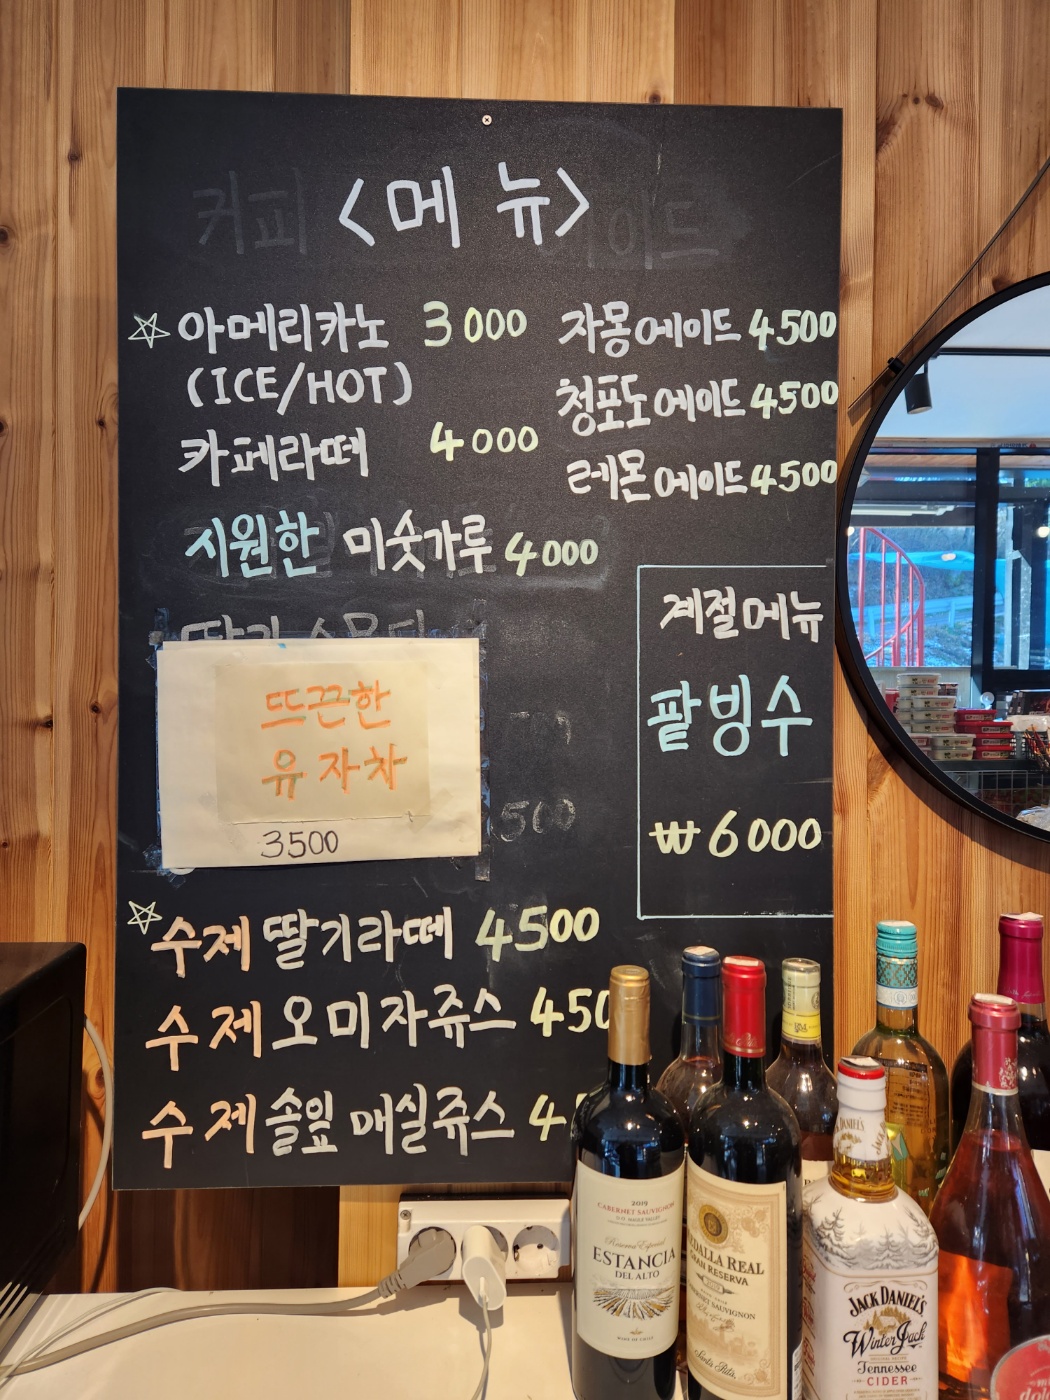 <메뉴>
☆ 아메리카노 3000
(ICE/HOT)
카페라떼 4000
시원한 미숫가루 4000
자몽에이드 4500
청포도에이드 4500
레몬에이드 4500
계절메뉴
팥빙수
₩6000
뜨끈한
유자차
3500
☆ 수제 딸기라떼 4500
수제 오미자쥬스 450
수제 솔잎 매실쥬스 4
2019
CABERNET SAUVIGNON
Reserva Especial
ESTANCIA
DEL ALTO
WINE OF CHILE
MEDALLA REAL
GRAN RESERVA
CABERNET SAUVIGNON
Santa Rita
JACK DANIEL'S
Winter Jack
Tennessee
CIDER